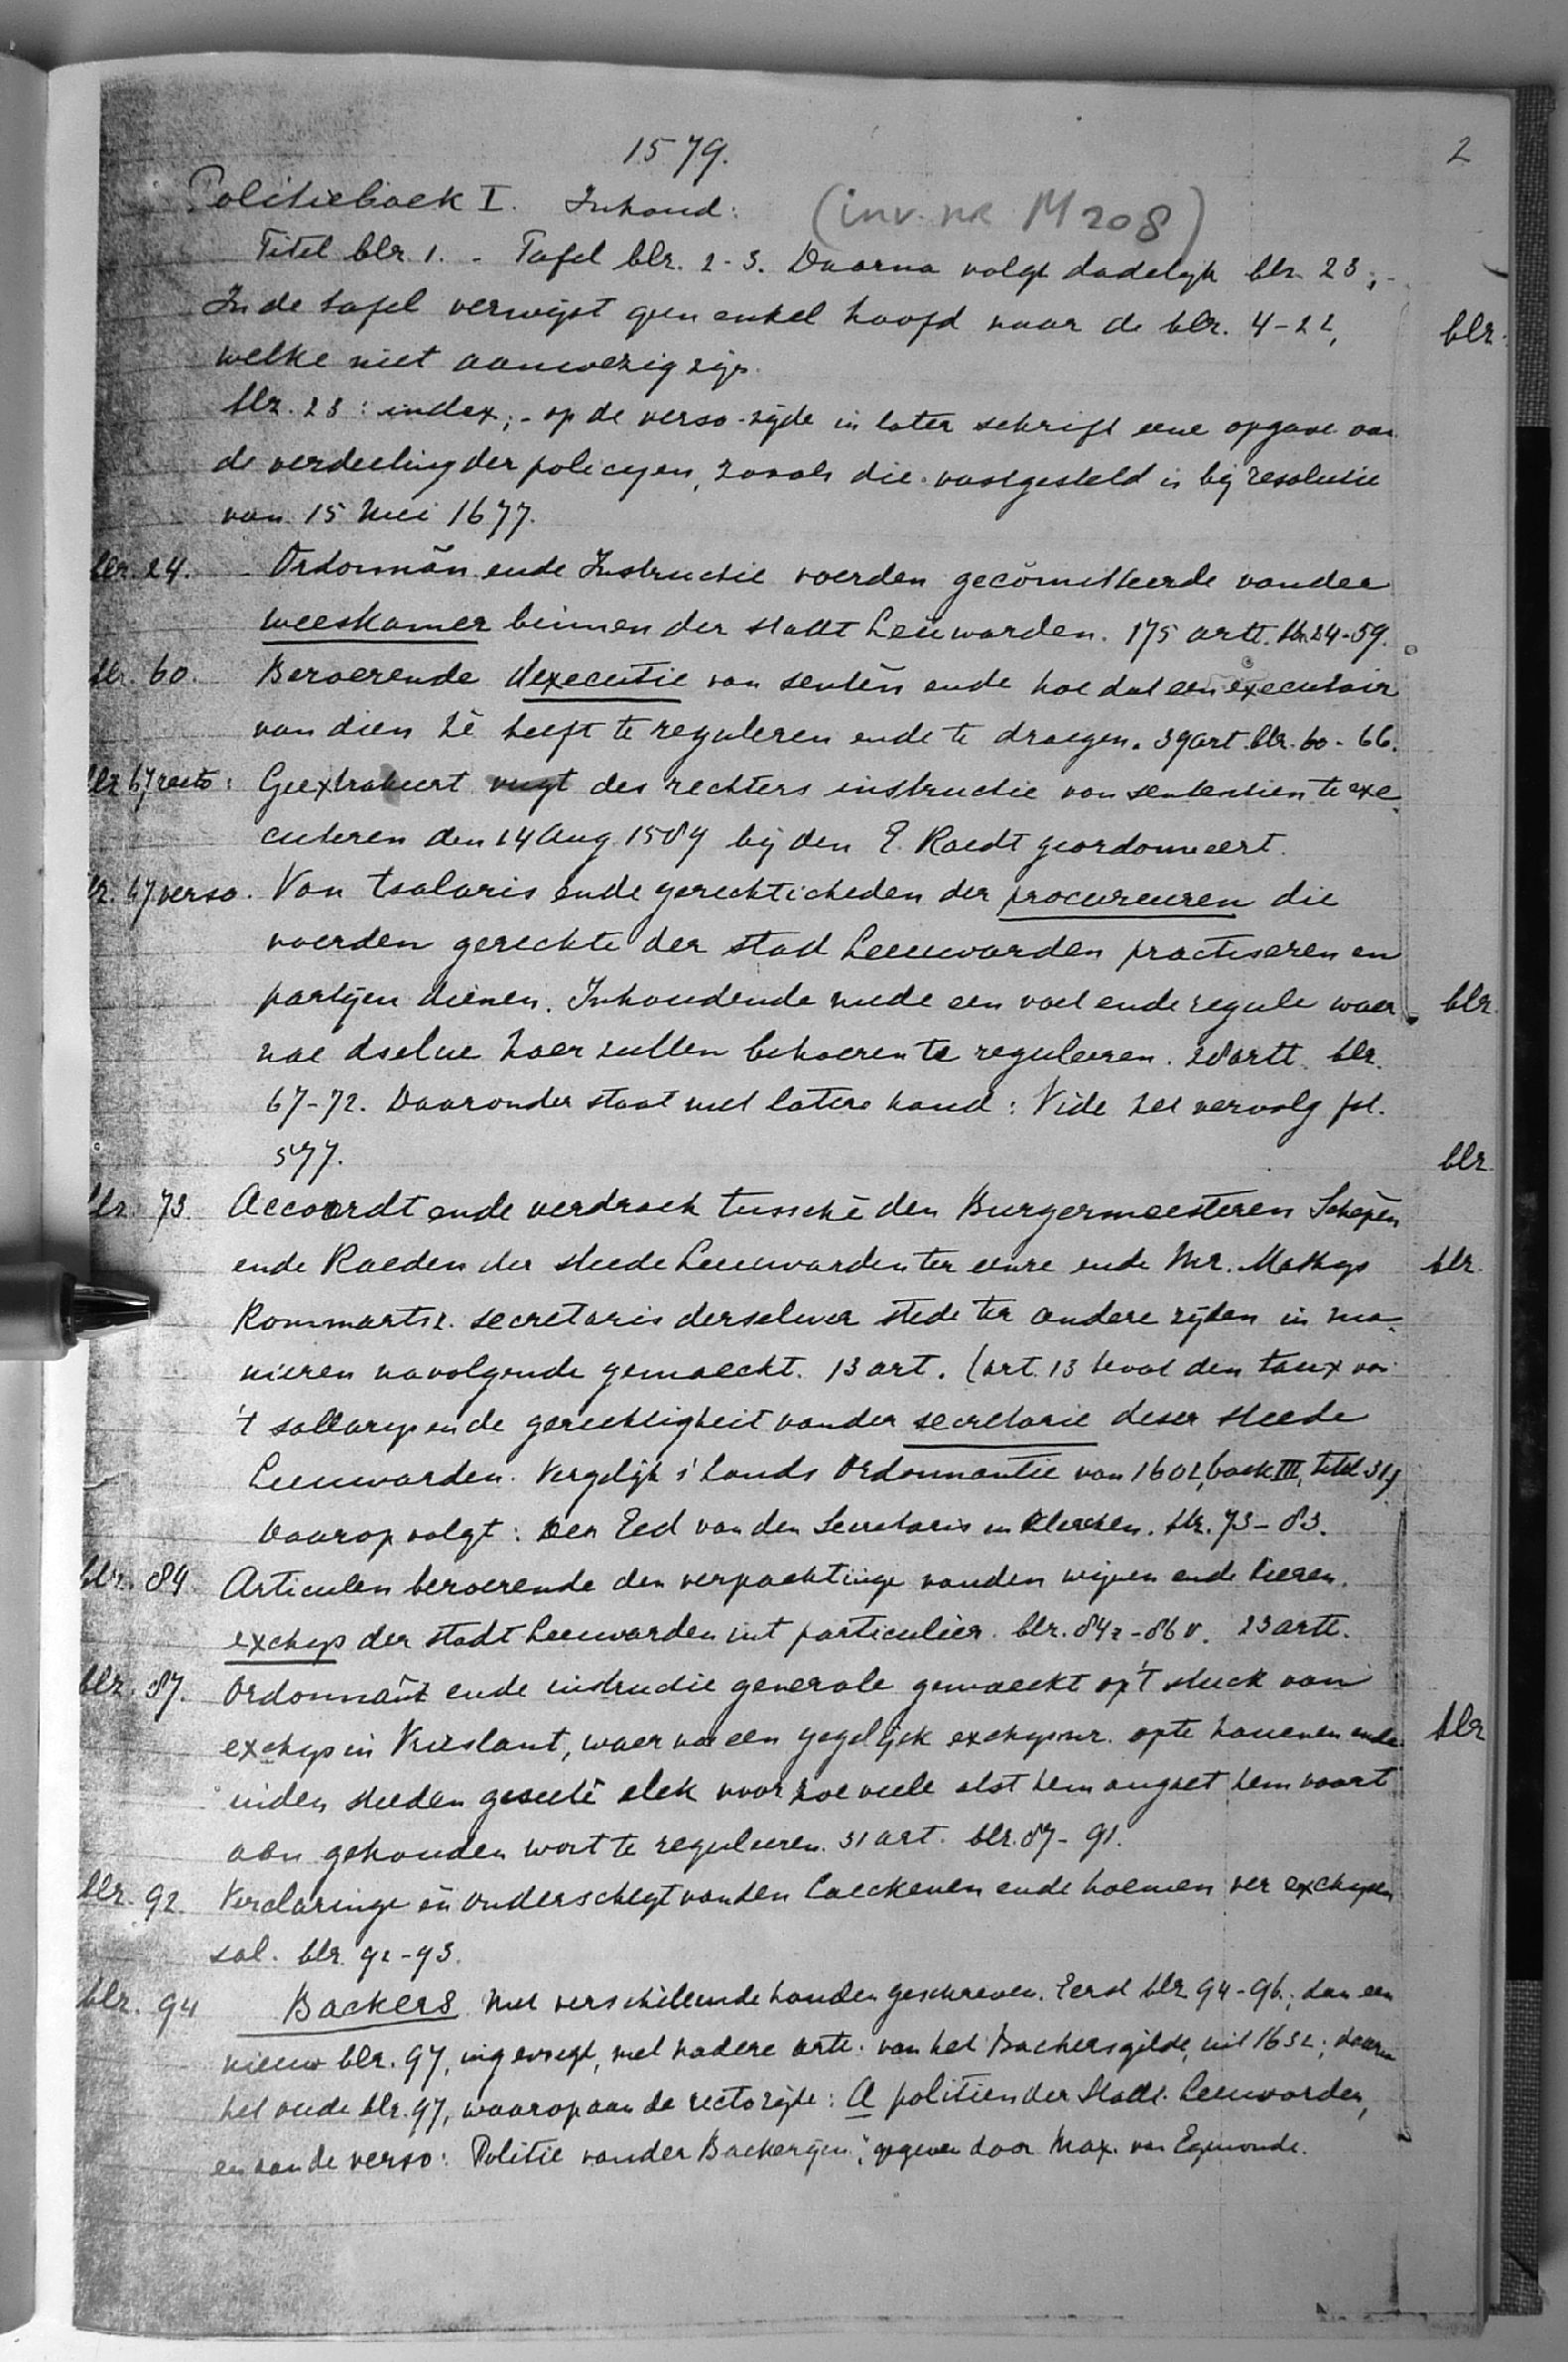 2
1579.
Politieboek I. Inhoud: (inv. nr M 208)
Titel blz. 1. - Tafel blz. 2-3. Daarna volgt dadelijk blz. 23;-
In de tafel verwijst geen enkel hoofd naar de blz. 4-22,
welke niet aanwezig zijn.
blz. 23: index;- op de verso-zijde in later schrift eene opgave van
de verdeeling der policyen, zooals die vastgesteld is bij resolutie
van 15 Mei 1677.
blz. 24. Ordonnãn ende Instructie voerden gecõmitteerde vander
weeskamer binnen der stadt Leeuwarden. 175 artt. blz 24-59.
blz. 60. Beroerende dexecutie van sentẽn ende hoe dat een executoir
van dien hẽ heeft te reguleren ende te draegen. 39 art. blz. 60-66.
blz 67 recto: Geextraheert vuyt des rechters instructie van sententien te exe-
cuteren den 14 Aug. 1584 bij den E. Raedt geordonneert.
blz. 67 verso. Van tsalaris ende gerechticheden der procureuren die
voerden gerechte der stad Leeuwarden practiseren en
partijen dienen. Inhoudende mede een voet ende regule waer
nae dselve haer zullen behoeren te reguleeren. 28 artt. blz.
67-72. Daaronder staat met latere hand: Vide het vervolg fol.
577.
blz. 73. Accoordt ende verdrach tusschẽ den Burgermeesteren Schepẽn
ende Raeden der steede Leeuwarden ter eenre ende Mr. Mathys
Rommartsz. secretaris derselver stede ter andere zijden in ma-
nieren navolgende gemaeckt. 13 art. (art. 13 bevat den taux van
't sallarys ende gerechtigheit vander secretarie deser steede
Leeuwarden. Vergelijk 's Lands Ordonnantie van 1602, boek III, titel 31)
Daarop volgt: Den Eed van den Secretaris en Clercken. blz. 73-83.
blz. 84 Articulen beroerende den verpachtinge vanden wijnen ende bieren.
exchys der stadt Leeuwarden int particulier. blz. 84 r-86 v. 23 artt.
blz. 87. Ordonnãnt ende instructie generale gemaeckt op't stuck van
exchys in Vrieslant, waer na een yegelijck exchysmr. opte havenen ende
inden steeden gesetẽ elck voor hoe veele alst hem angaet hem voort
aen gehouden wort te reguleeren. 31 art. blz. 87-91.
blz. 92. Verclaringe en onderscheyt vanden laeckenen ende hoemen ver exchysen
sal. blz. 92-93.
blz. 94 Backers Met verschillende handen geschreven. Eerst blz 94-96; dan een
nieuw blz. 97, ingevoegd, met nadere artt. van het Backersgilde, uit 1632; daarna
het oude blz. 97, waarop aan de recto zijde: A politien der Stadt Leeuwarden,
en aan de verso: Politie vander Backerijen", gegeven door Max. van Egmonde.
blz.
blz.
blz.
blz.
blz